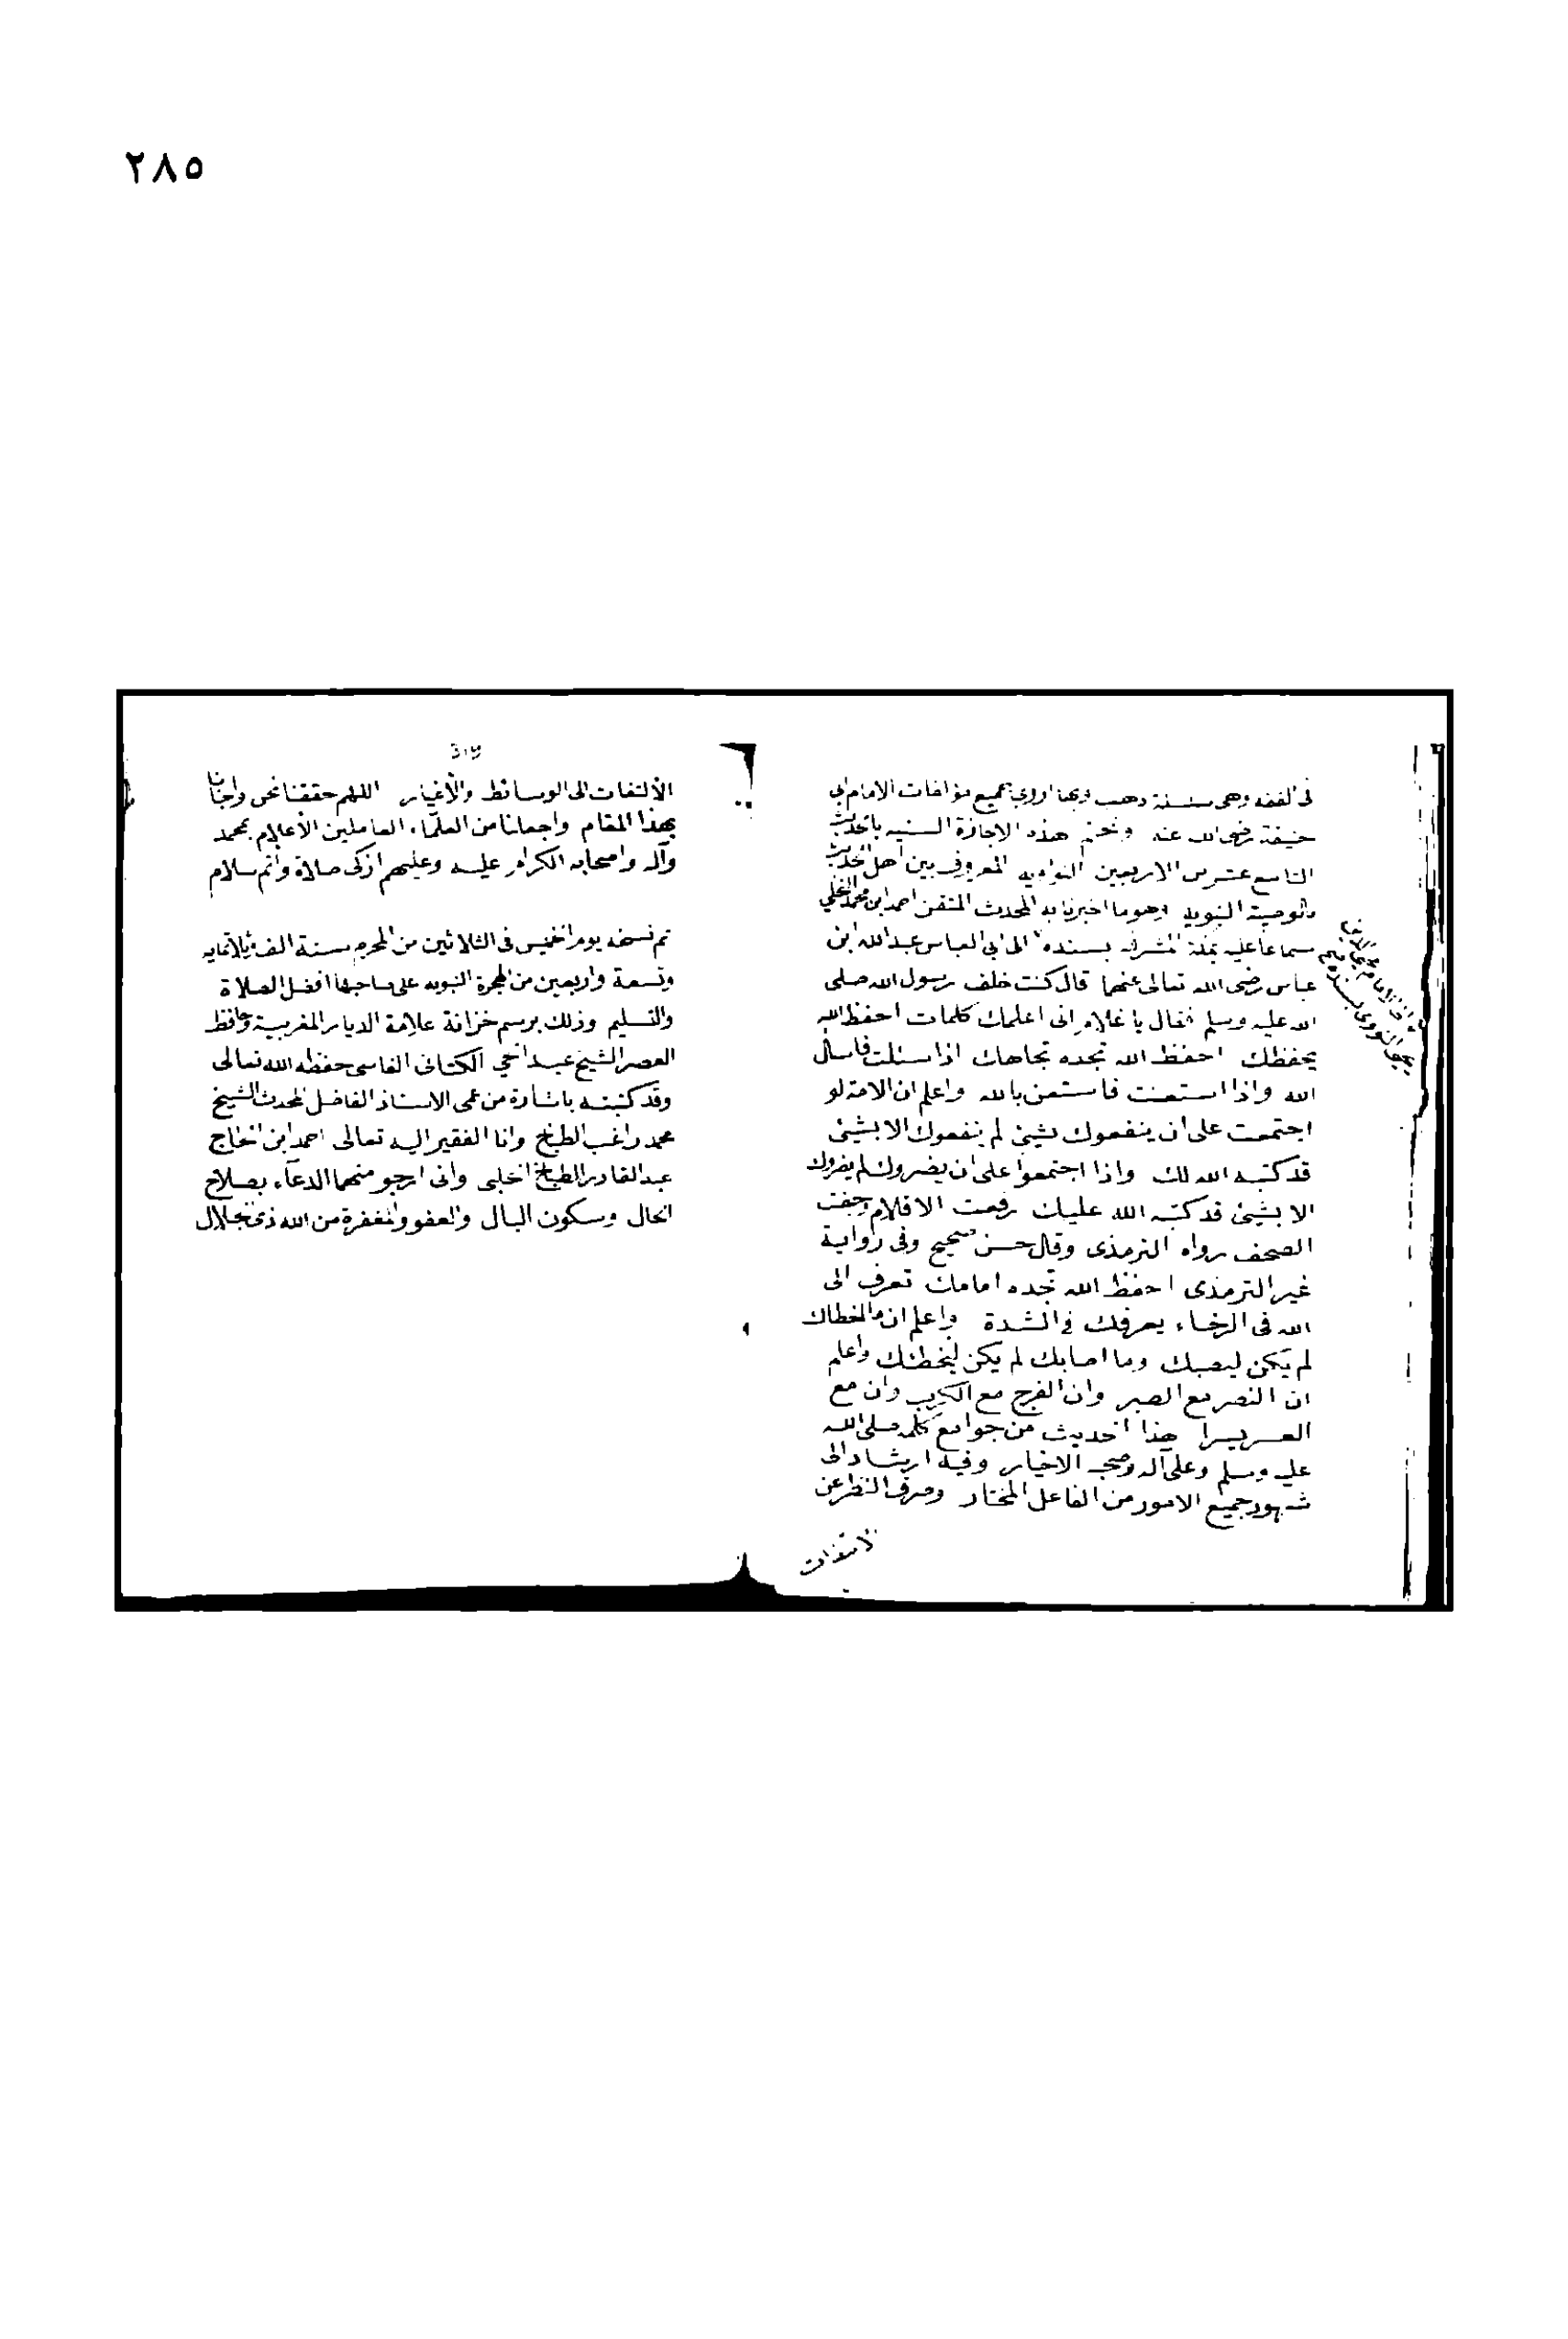 ٢٨٥
فى الفقه وهى سلسلة ذهب وبها اروي جميع مؤلفات الامام ابي
حنيفة رضي الله عنه ونختم هذه الاجازة السنيه بالحديث
التاسع عشر من الاربعين النواويه المعروف بين اهل الحديث
بالوصية النبويه وهو ما اخبرنا به المحدث المتقن احمد ابن محمد النخلي
سماعا عليه بمكة المشرفه بسنده الى ابي العباس عبد الله ابن
عباس رضى الله تعالى عنهما قال كنت خلف رسول الله صلى
الله عليه وسلم فقال يا غلام انى اعلمك كلمات احفظ الله
يحفظك احفظ الله تجده تجاهك اذا سئلت فاسأل
الله واذا استعنت فاستعن بالله واعلم ان الامة لو
اجتمعت على ان ينفعوك بشيئ لم ينفعوك الا بشيئ
قد كتبه الله لك واذا اجتمعوا على ان يضروك لم يضروك
الا بشيئ قد كتبه الله عليك رفعت الاقلام وجفت
الصحف رواه الترمذى وقال حسن صحيح وفى رواية
غير الترمذى احفظ الله تجده امامك تعرف الى
الله فى الرخاء يعرفك في الشدة واعلم ان ما اخطاك
لم يكن ليصيبك وما اصابك لم يكن ليخطئك واعلم
ان النصر مع الصبر وان الفرج مع الكرب وان مع
العسر يسرا هذا الحديث من جوامع كلمه صلى الله
عليه وسلم وعلى آله وصحبه الاخيار وفيه ارشاد الى
شهود جميع الامور من الفاعل المختار وصرف النظر عن
الالتفات
الامام محي الدين
يحيى النووي بسنده
الألتفات الى الوسائط والأغيار اللهم حققنا نحن واحبابنا
بهذا المقام واجعلنا من العلماء العاملين الأعلام بمحمد
وآله واصحابه الكرام عليه وعليهم ازكى صلاة وأتم سلام
تم نسخه يوم الخميس فى الثلاثين من المحرم سنة الف وثلاثمايه
وتسعة واربعين من الهجرة النبويه على صاحبها افضل الصلاة
والتسليم وذلك برسم خزانة علامة الديار المغربية وحافظ
العصر الشيخ عبد الحي الكتانى الفاسى حفظه الله تعالى
وقد كتبته باشارة من عمى الاستاذ الفاضل المحدث الشيخ
محمد راغب الطباخ وانا الفقير اليه تعالى احمد ابن الحاج
عبد القادر الطباخ الحلبى وانى ارجو منهما الدعاء بصلاح
الحال وسكون البال والعفو والمغفرة من الله ذى الجلال